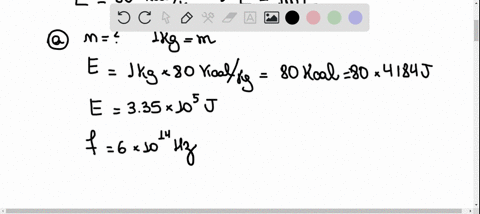 ⓐ m = ? 1kg = m
E = 1kg × 80 Kcal/kg = 80 Kcal = 80 × 4184 J
E = 3.35 × 10⁵ J
f = 6 × 10¹⁴ Hz